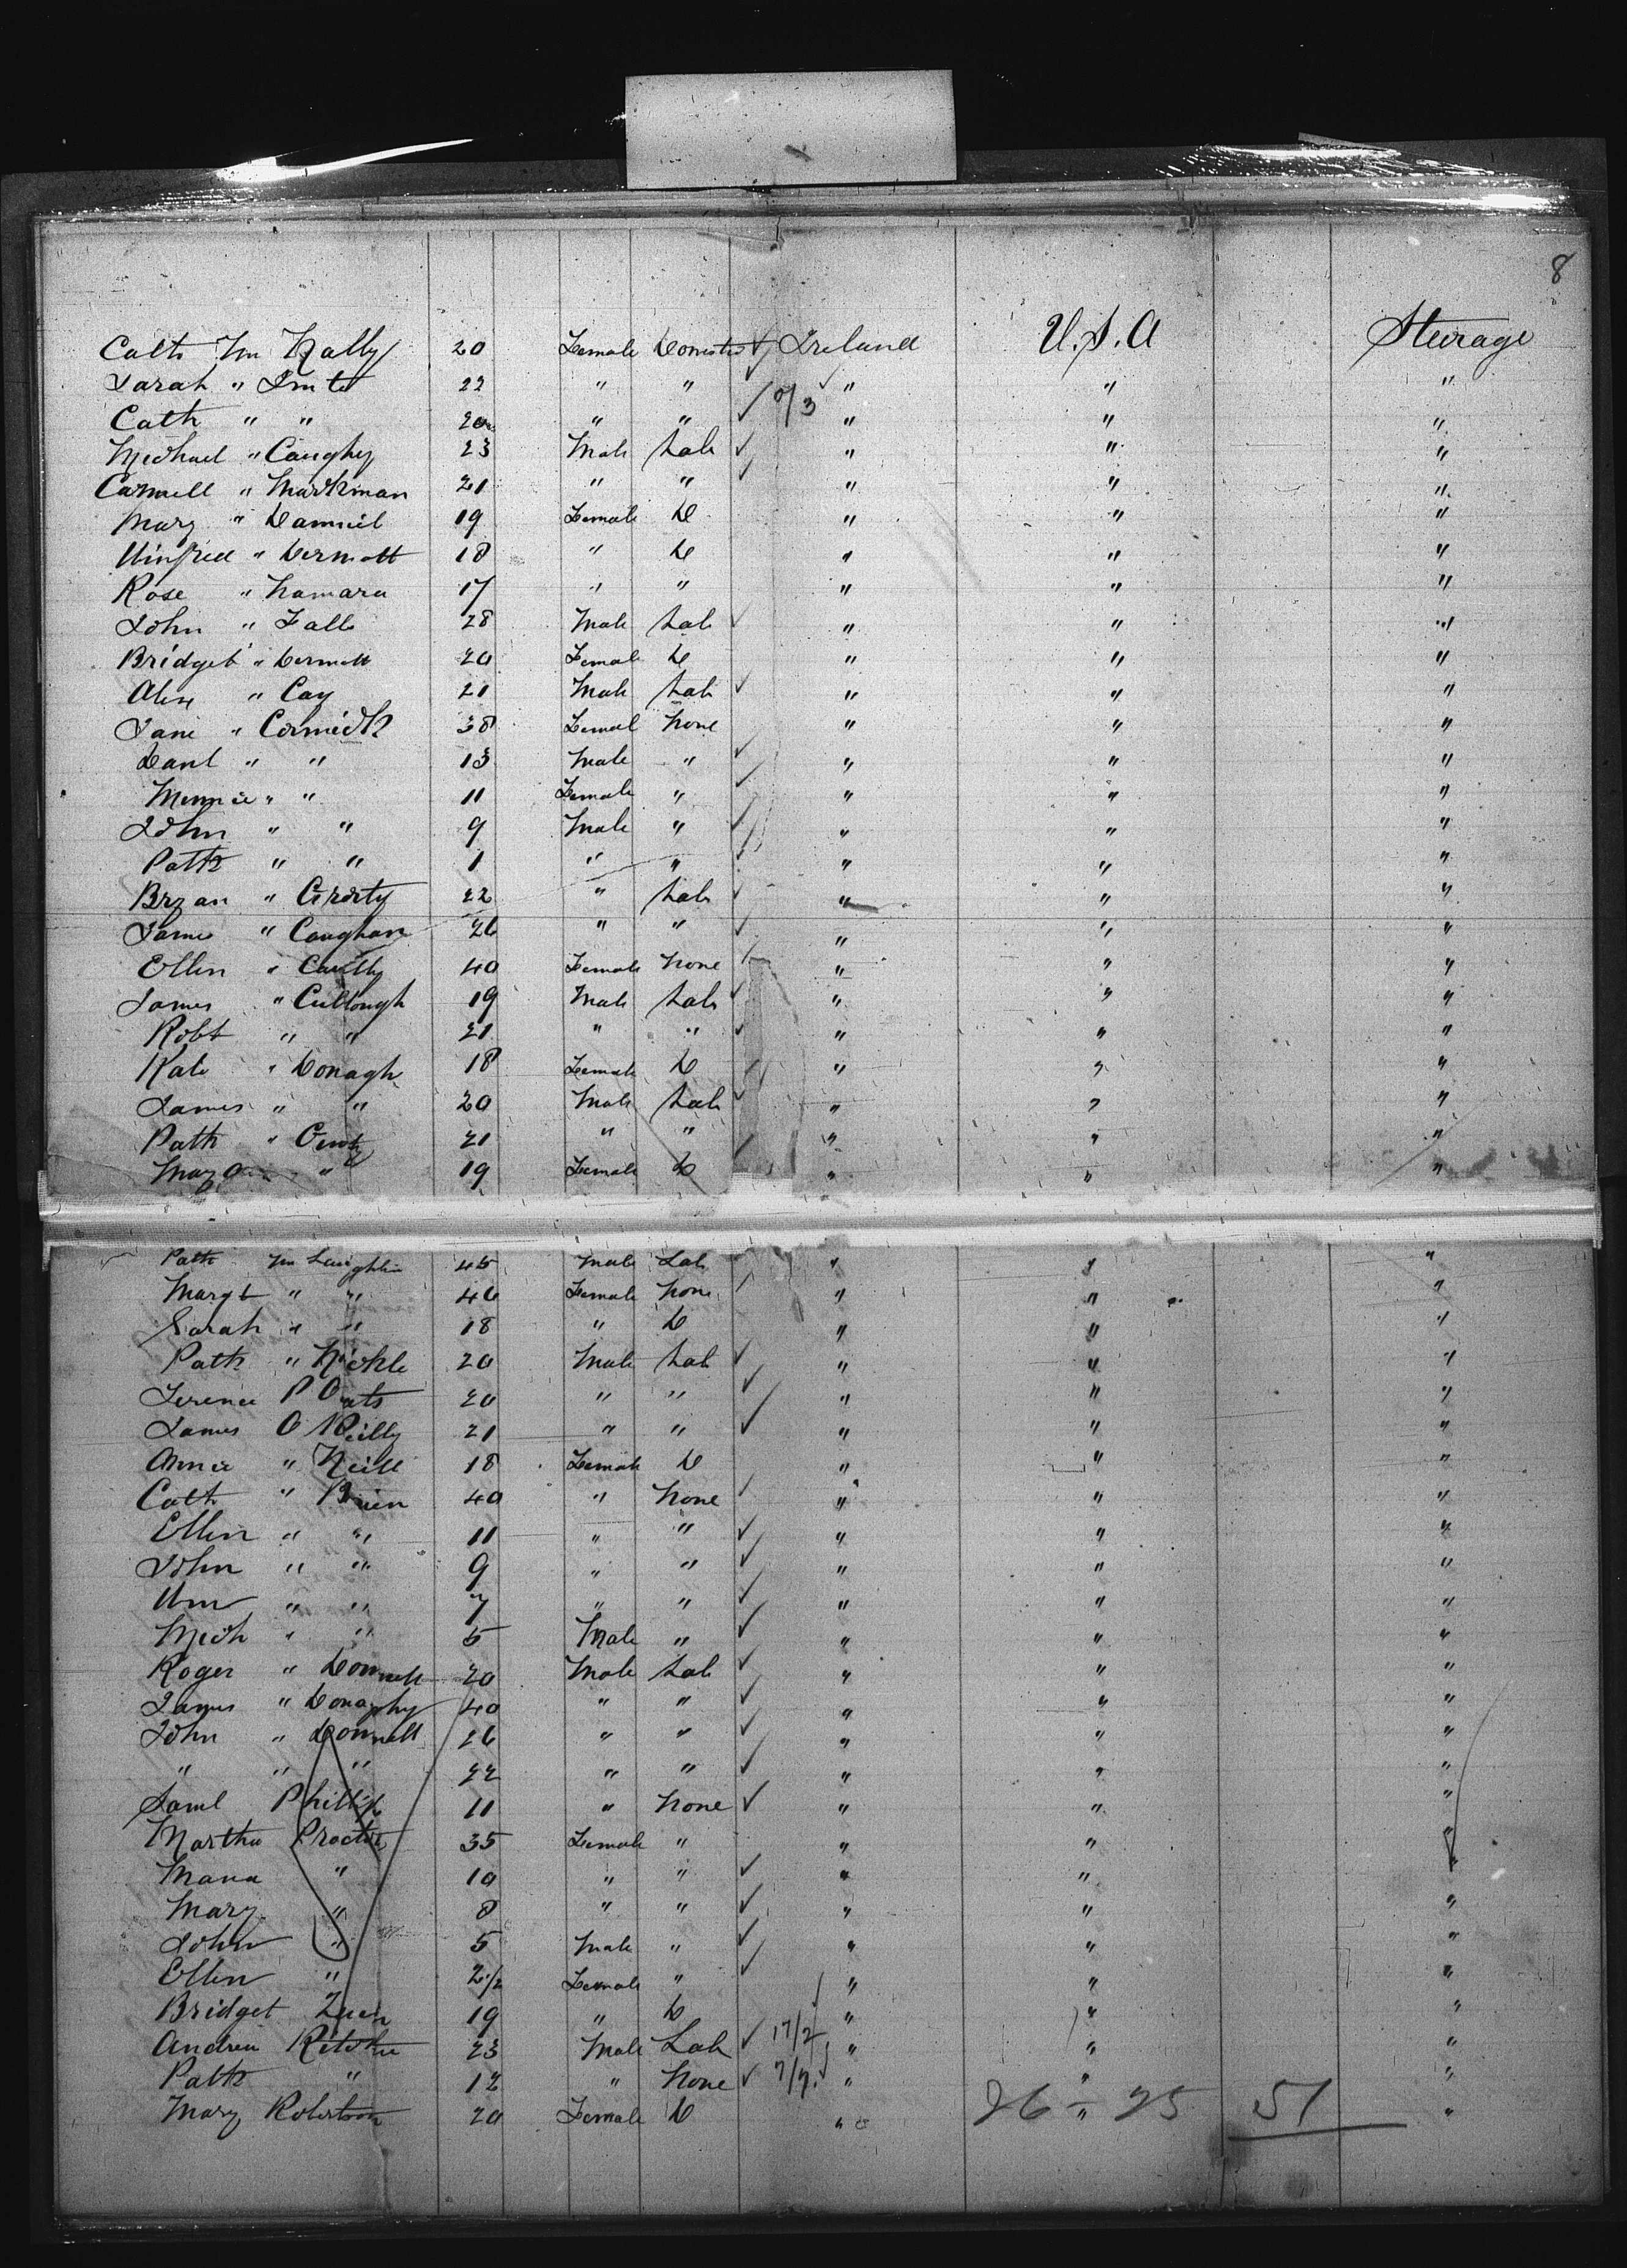 8
Cath Mc Nally 20 Female Domestic ✓ Ireland U.S.A Steerage
Sarah " 22 " " ✓ " " "
Cath " " 20 " " ✓ 9/3 " " "
Michael " Caughy 23 Male Lab ✓ " " "
" Markman 21 " " ✓ " " "
Mary " Daniel 19 Female D " " "
Winfred " Dermott 18 " D " " "
Rose " Namara 17 " " " " "
John " Falls 28 Male Lab ✓ " " "
Bridget " Dermott 20 Female D " " "
Alex " Cay 21 Male Lab ✓ " " "
Jane " Cormick 38 Female None " " "
Danl " " 13 Male " ✓ " " "
Minnie " " 11 Female " ✓ " " "
John " " 9 Male " ✓ " " "
Patk " " 1 " " ✓ " " "
Bryan " 22 " Lab ✓ " " "
James " Caughan 26 " " ✓ " " "
Ellen " 40 Female None ✓ " " "
James " Cullough 19 Male Lab ✓ " " "
Robt " " 21 " " ✓ " " "
Kate " Donagh 18 Female D ✓ " " "
James " " 20 Male Lab ✓ " " "
Patk " 21 " " " " "
Mary " 19 Female D ✓ " " "
Patk Mc Laughlin 45 Male Lab ✓ " " "
Margt " " 46 Female None ✓ " " "
Sarah " " 18 " D " " "
Patk " Nickle 20 Male Lab ✓ " " "
Terence P Oats 20 " " ✓ " " "
James O Reilly 21 " " ✓ " " "
Annie " Neill 18 Female D " " "
Cath " Brien 40 " None ✓ " " "
Ellen " " 11 " " ✓ " " "
John " " 9 " " ✓ " " "
Wm " " 7 " " ✓ " " "
Mich " " 5 Male " ✓ " " "
Roger " Donnell 20 Male Lab ✓ " " "
James " Donaghy 40 " " ✓ " " "
John " Donnell 26 " " ✓ " " "
" " " 22 " " ✓ " " "
Saml Phillips 11 " None ✓ " " "
Martha Proctor 35 Female " " " "
Maria " 10 " " ✓ " " "
Mary " 8 " " ✓ " " "
John " 5 Male " ✓ " " "
Ellen " 2 1/2 Female " ✓ " " "
Bridget 19 " D " " "
Andrew Ritchie 23 Male Lab ✓ 17/2 " " "
Patk " 12 " None ✓ 7/7 " " "
Mary Robertson 20 Female D " " "
26 - 25 51